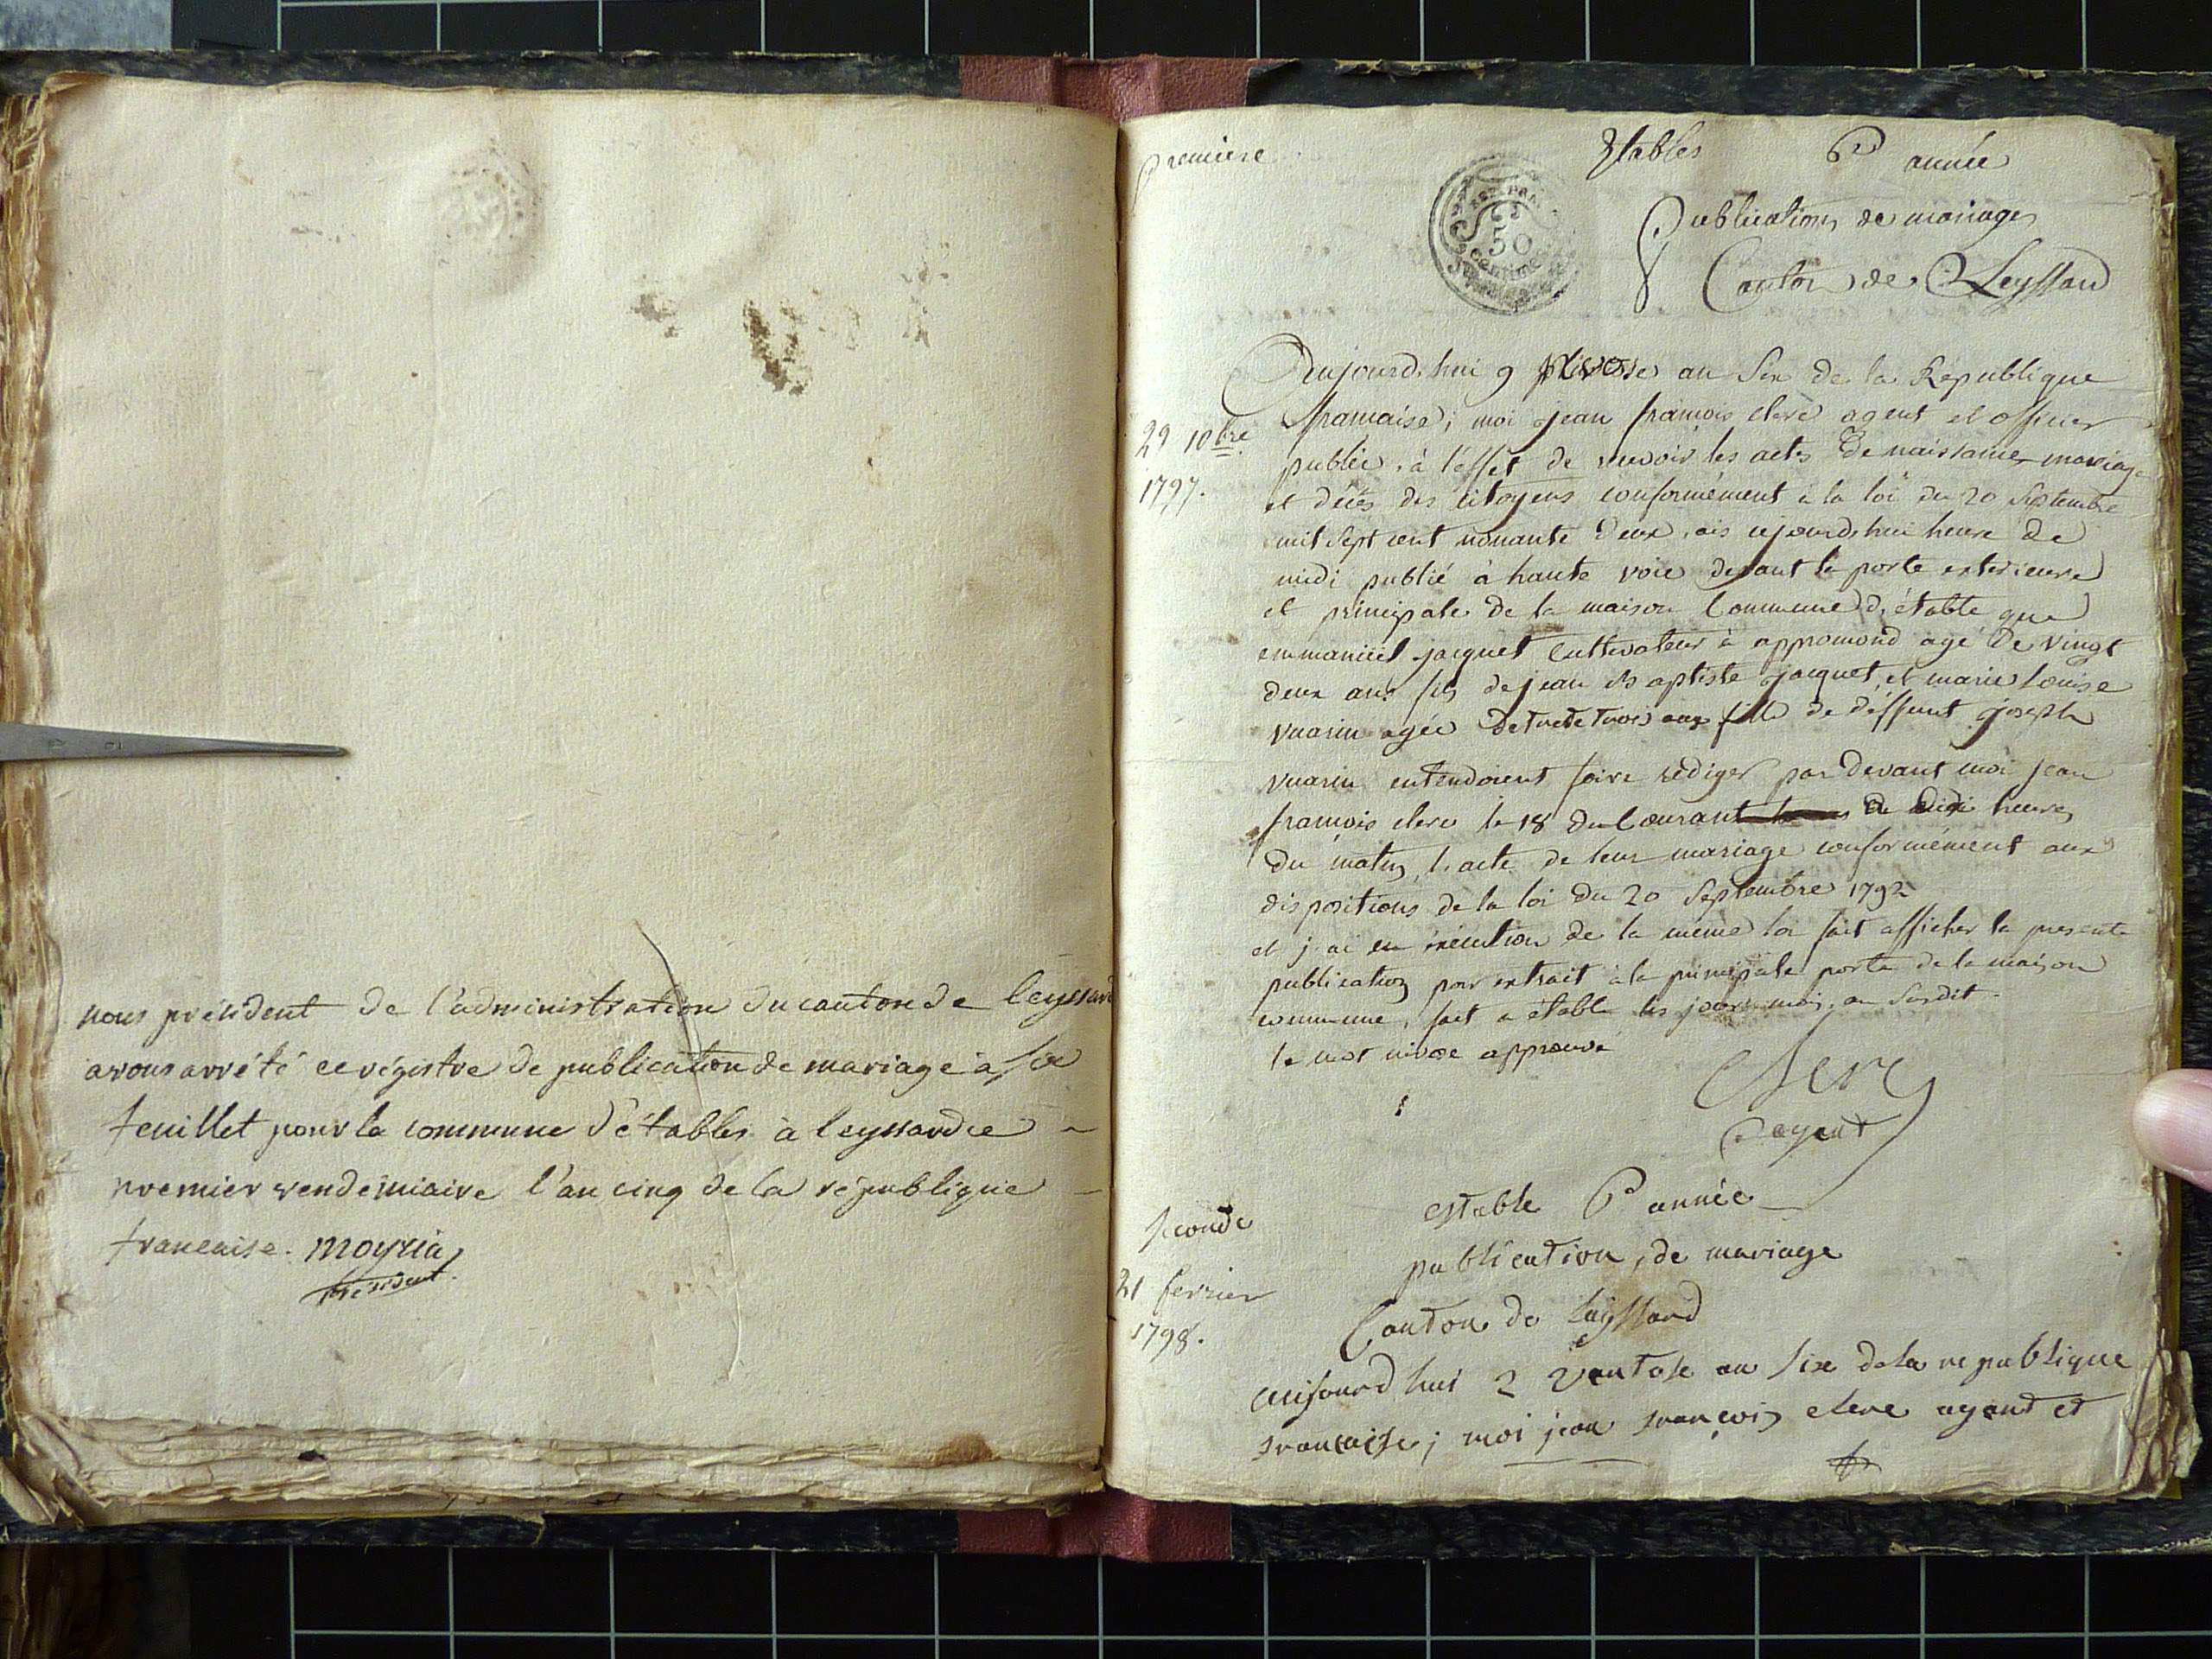 nous président de l'administration du canton de leyssard
avons arrêté ce régistre de publication de mariage à six
feuillet pour la commune d'étables à leyssard ce
premier vendémiaire l'an cinq de la république
francaise. moyria
président.
premiere
Etables 6e année
REP. FRA.
50
centimes
Publications de mariages
Canton de Leyssard
29 10bre
1797.
Aujourd'hui 9 nivose an six de la République
francaise; moi jean francois clerc agent et officier
public, à l'effet de recevoir les actes de naissance mariage
et decès des citoyens conformément à la loi du 20 septembre
mil sept cent nonante deux, ais cejourd'hui heure de
midi publié à haute voix devant la porte exterieure
et principale de la maison commune d'étable que
emmaniiel jacquet cultivateur à appromond agé de vingt
deux ans fils de jean Baptiste jacquet, et marie Louise
vuarin agée de trente trois ans fille de déffunt joseph
vuarin entendoient faire rédiger par devant moi jean
francois clerc le 18 du courant de dix heures
du matin, l'acte de leur mariage conformément aux
dispositions de la loi du 20 septembre 1792
et j'ai en éxécution de la même loi fait afficher la presente
publication pour extrait à la principale porte de la maison
commune, fait à étable les jours mois, an susdit.
le mot nivose approuvé
Clerc
agent
seconde
estable 6e année
publication, de mariage
21 fevrier
1798.
Canton de Leyssard
aujourd hui 2 vantose an six de la republique
francaisse; moi jean françois clerc agent et